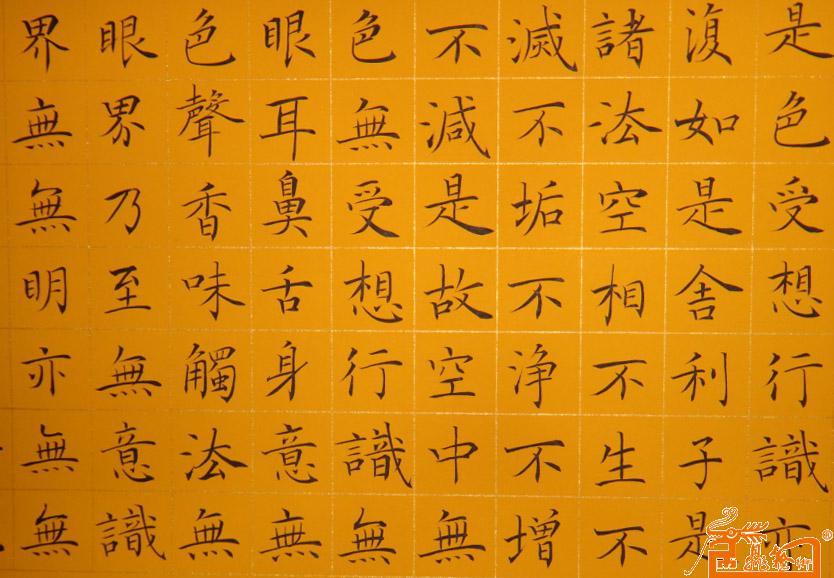 是色受想行識亦
復如是舍利子是
諸法空相不生不
滅不垢不净不增
不減是故空中無
色無受想行識無
眼耳鼻舌身意無
色聲香味觸法無
眼界乃至無意識
界無無明亦無無